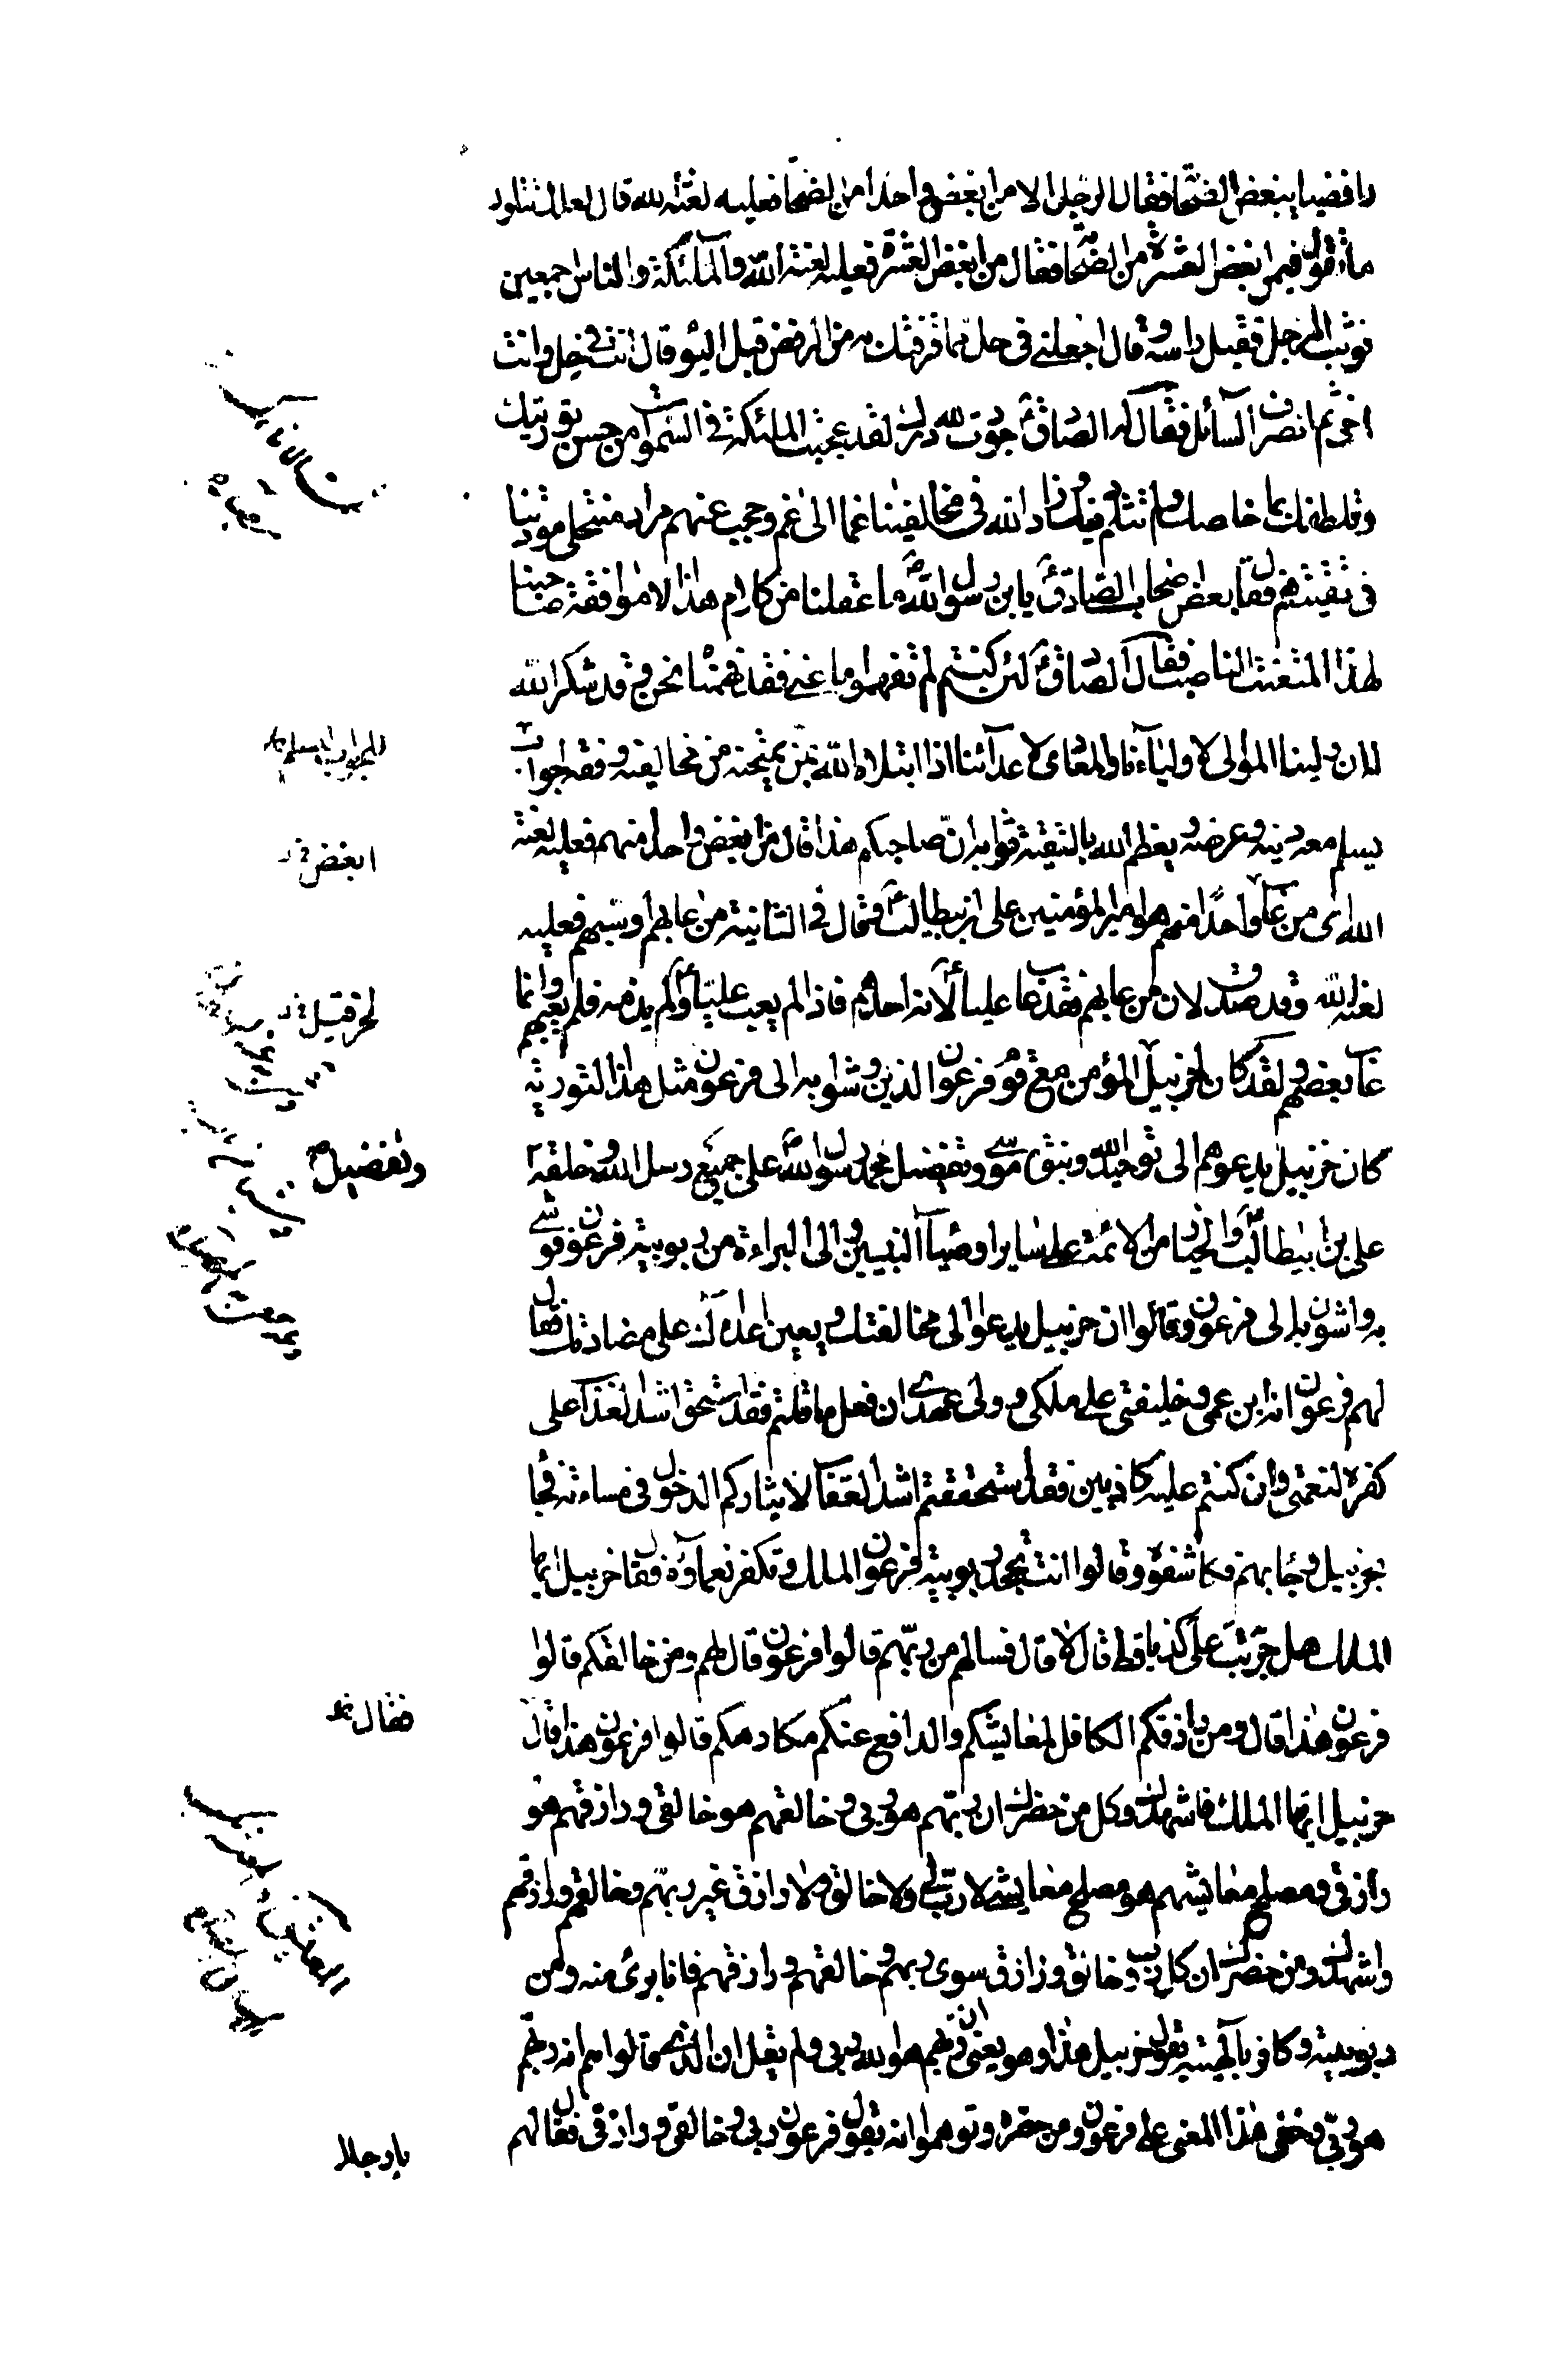 رافضيا يبغض الصحابة فقال الرجل الا من ابغض واحدا من الصحابة فعليه لعنة الله قال لعلك تتاول
ما تقول فيمن ابغض العشرة من الصحابة فقال من ابغض العشرة فعليه لعنة الله والملئكة والناس اجمعين
فوثب الرجل فقبل راسه وقال اجعلني في حل مما قرفتك به من الرفض قبل اليوم قال انت في حل وانت
اخي ثم انصرف السائل فقال له الصادق ع جودت لله درك لقد عجبت الملئكة في السموات من حسن توريتك
وتلطفك بما خلصك ولم تثلم دينك وزاد الله في مخالفينا غما الى غم وحجب عنهم مراد منتحلي مودتنا
في تقيتهم فقال بعض اصحاب الصادق ع يا بن رسول الله ص ما عقلنا من كلام هذا الا موافقة صاحبنا
لهذا المتعنت الناصب فقال الصادق ع لئن كنتم لم تفهموا ما عنى فقد فهمناه نحن وقد شكر الله
له ان ولينا الموالي لاوليآءنا والمعادي لاعدآئنا اذا ابتلاه الله بمن يمتحنه من مخالفيه وفقه لجواب
يسلم معه دينه وعرضه ويعظم الله بالتقية ثوابه ان صاحبكم هذا قال من ابغض واحدا منهم فعليه لعنة
الله اى من عاب واحدا منهم هو امير المؤمنين على بن ابيطالب ع وقال في الثانية من عابهم وشتمهم فعليه
لعنة الله وقد صدق لان من عابهم فقد عاب عليا ع لانه احدهم فاذا لم يعب عليا ع ولم يذمه فلم يعبهم وانما
عاب بعضهم ولقد كان لخربيل المؤمن مع قوم فرعون الذين وشوا به الى فرعون مثل هذا التورية
كان خربيل يدعوهم الى توحيد الله ونبوة موسى وتفضيل محمد رسول الله ص على جميع رسل الله وخلقه
على بن ابيطالب ع والخيار من الائمة على ساير اوصيآء النبيين والى البراءة من ربوبية فرعون فوشى
به واشون الى فرعون وقالوا ان خربيل يدعو الى مخالفتك ويعين اعدائك على مضادتك فقال
لهم فرعون انه ابن عمي وخليفتي على ملكي وولي عهدي ان فعل ما قلتم فقد استحق اشد العذاب على
كفره لنعمتي وان كنتم عليه كاذبين فقد استحققتم اشد العقاب لايثاركم الدخول في مساءته فجاء
بخربيل وجاء بهم وكاشفوه وقالوا انت تجحد ربوبية فرعون الملك وتكفر نعمآؤه فقال خربيل ايها
الملك هل جربت علي كذبا قط قال لا قال فسلهم من ربهم قالوا فرعون قال لهم ومن خالقكم قالوا
فرعون هذا قال ومن رازقكم الكافل لمعايشكم والدافع عنكم مكارهكم قالوا فرعون هذا قال
خربيل ايها الملك فاشهدك وكل من حضرك ان ربهم هو ربي وخالقهم هو خالقي ورازقهم هو
رازقي ومصلح معايشهم هو مصلح معايشي لا رب لي ولا خالق ولا رازق غير ربهم وخالقهم ورازقهم
واشهدك ومن حضرك ان كل رب وخالق ورازق سوى ربهم وخالقهم ورازقهم فانا برئ منه ومن
ربوبيته وكافر بآلهيته يقول خربيل هذا وهو يعني ان ربهم هو الله ربي ولم يقل ان الذي قالوا هم انه ربهم
هو ربي وخفي هذا المعنى على فرعون ومن حضره وتوهموا انه يقول فرعون ربي وخالقي ورازقي فقال لهم
لجواب يسلم
ابغض خ
لحزقيل خ
وتفضيل
فقال خ
يا رجال